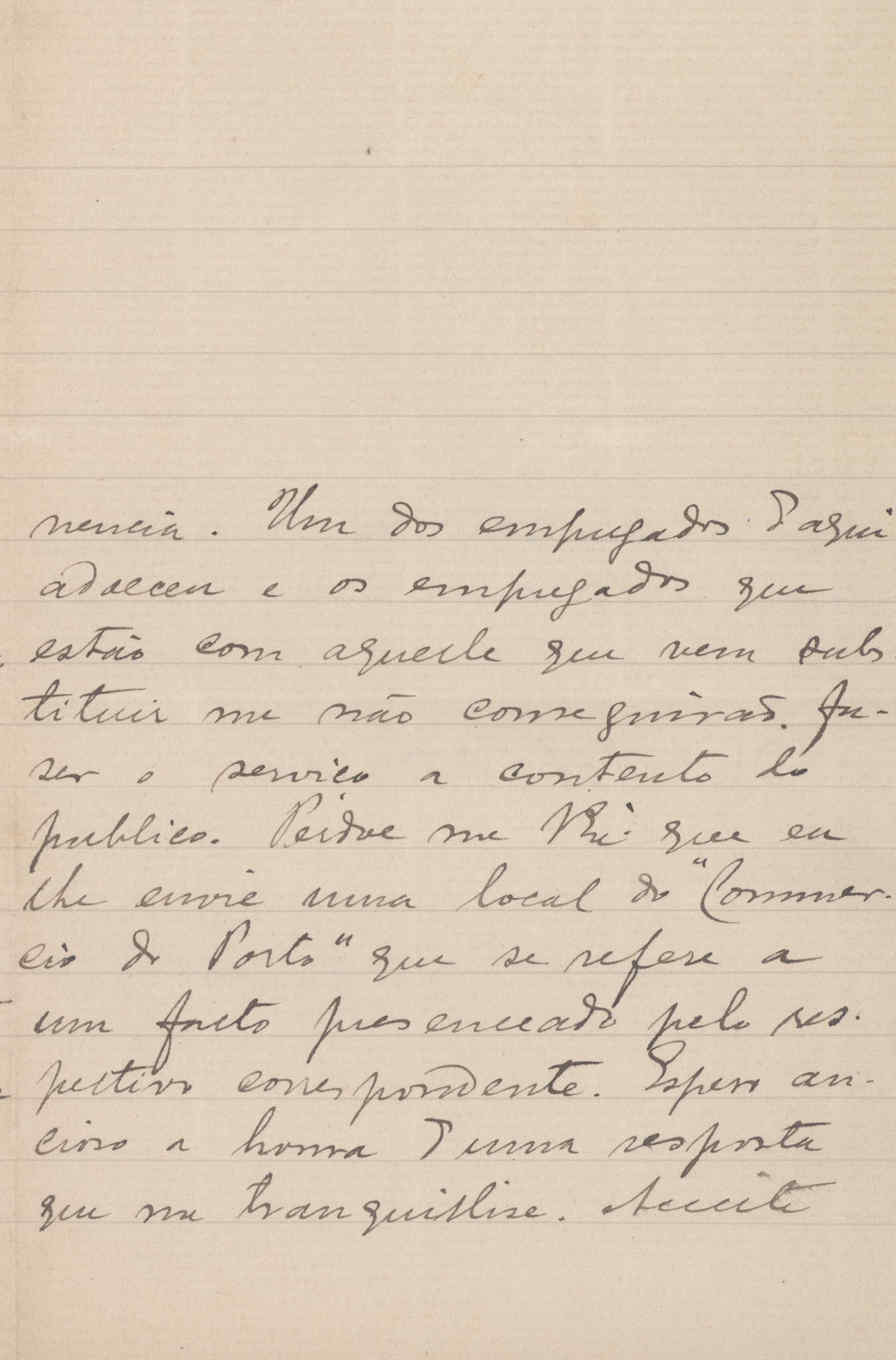 nencia. Um dos empregados d'aqui
adoeceu e os empregados que
estão com aquelle que vem subs
tituir me não conseguirão fa-
ser o serviço a contento do
publico. Perdoe me que eu
lhe envie uma local do "Commer-
cio do Porto" que se refere a
um facto presenceado pelo res-
pectivo correspondente. Espero an-
cioso a honra d'uma resposta
que me tranquillise. Acceite